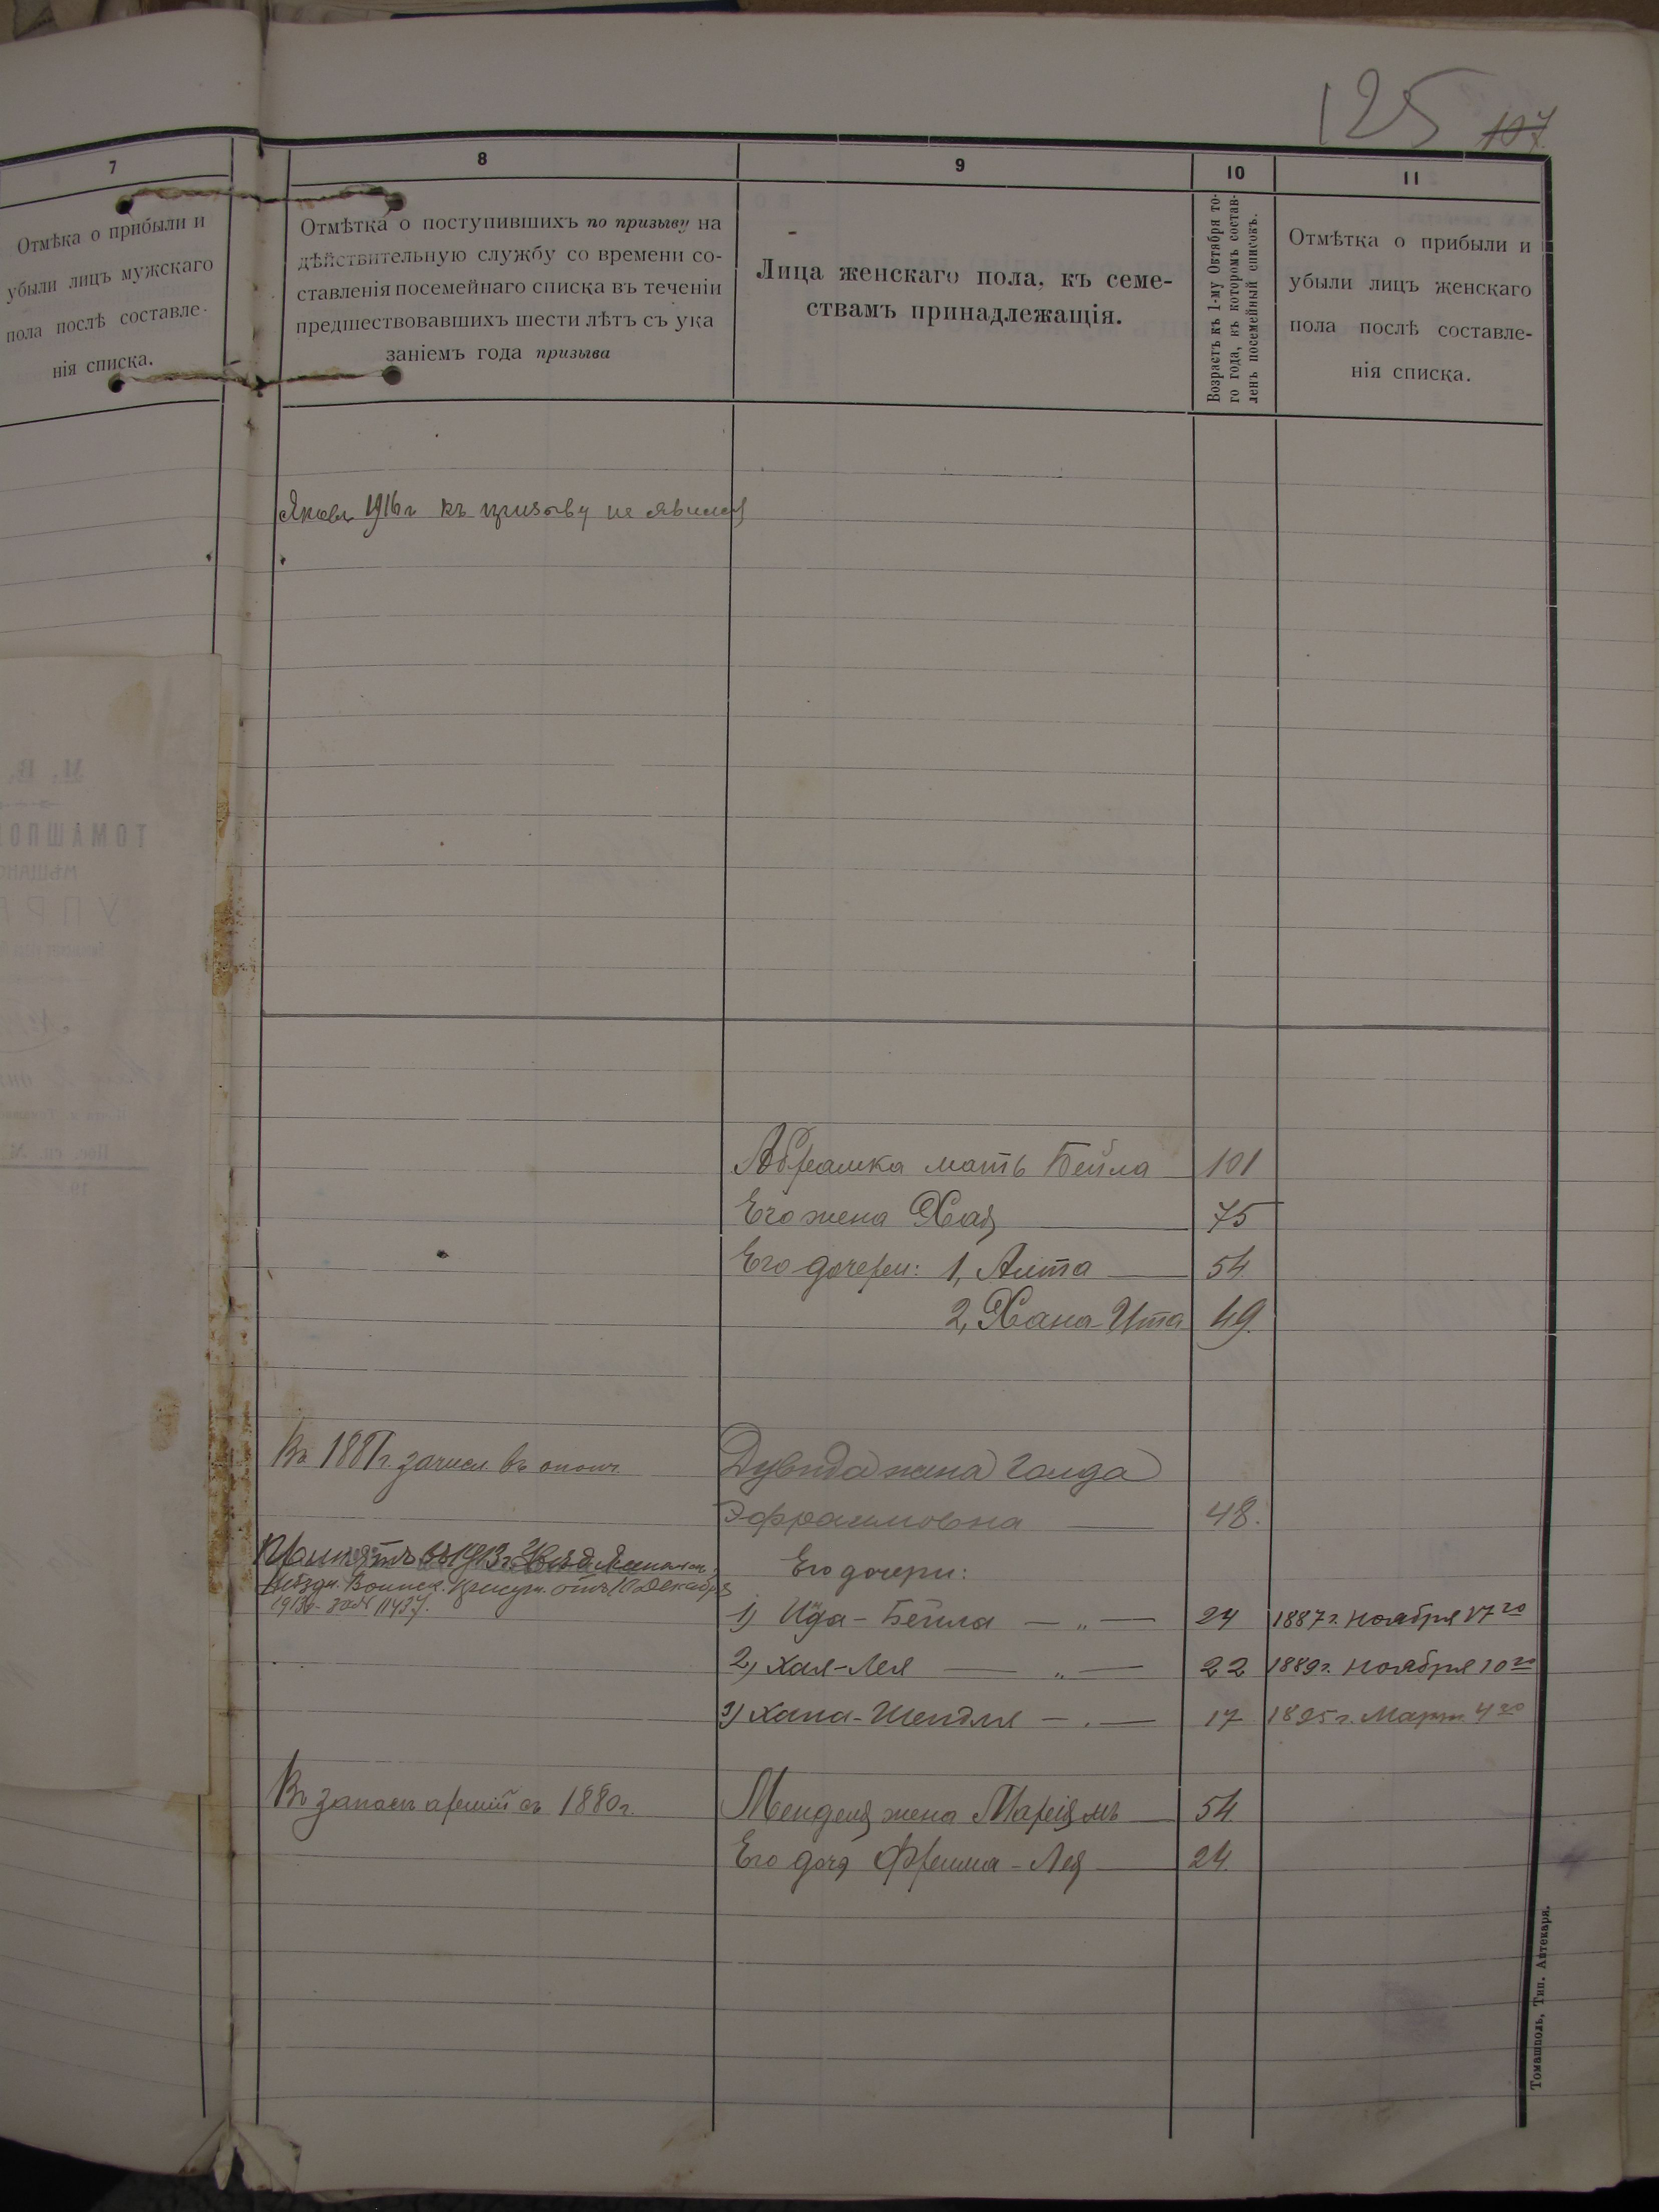 125 107.
7
8
9
10
11
Отмѣка о прибыли и
убыли лицъ мужскаго
пола послѣ составле-
нія списка.
Отмѣтка о поступившихъ по призыву на
дѣйствительную службу со времени со-
ставленія посемейнаго списка въ теченіи
предшествовавшихъ шести лѣтъ съ ука
заніемъ года призыва
Лица женскаго пола, къ семе-
ствамъ принадлежащія.
Возрастъ къ 1-му Октября то-
го года, въ которомъ состав-
ленъ посемейный списокъ.
Отмѣтка о прибыли и
убыли лицъ женскаго
пола послѣ составле-
нія списка.
1916 г къ призыву не явился
Абрамка мать Бейла 101
Его жена Хая 75
Его дочери: 1, 54
2, Хана-Ита 49.
Въ 1881 г. зачисл въ ополч.
Дувида жена Голда
Эфраимовна 48.
Принятъ въ 1913 г.
Уѣздн. Воинск. присут. отъ 10 Декабря
1913 г. за № 11437.
Его дочери:
1) Ида-Бейла — „ — 24 1887 г. Ноября 17 го
2) Хая-Лея — „ — 22 1889 г. Ноября 10 го
3) Хана-Шендля — „ — 17 1895 г. Март. 4 го
Въ запасѣ арміи съ 1880 г.
Менделя жена Маріямъ 54
Его дочь Фрейма-Лея 24.
Томашполь, Тип. Аптекаря.